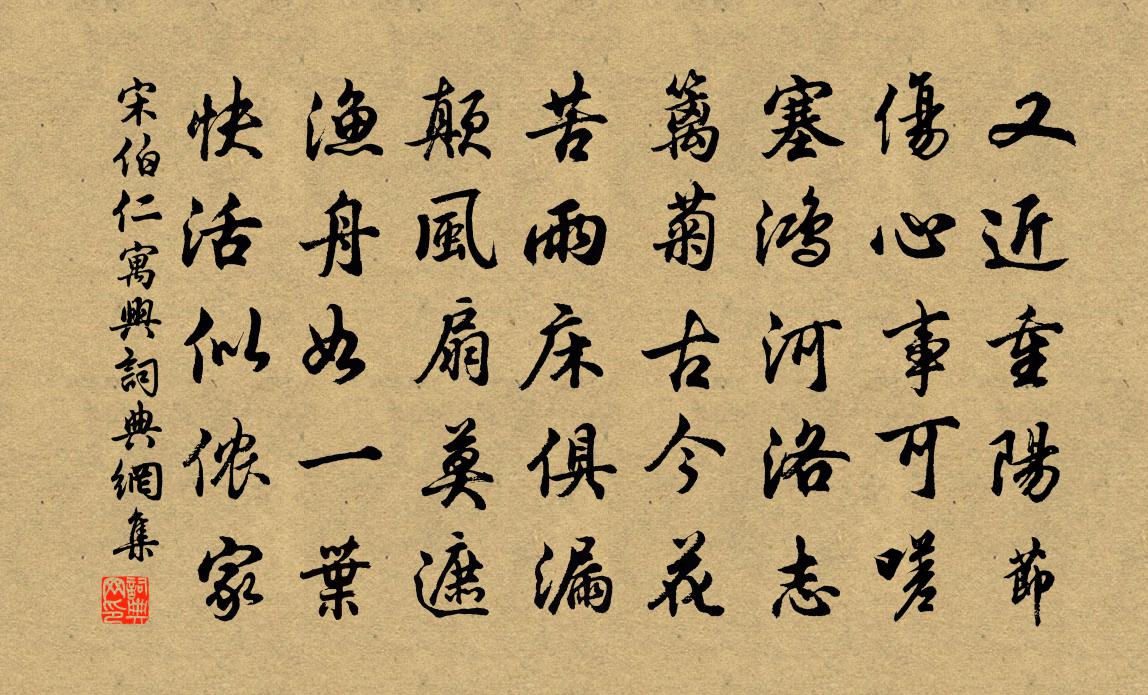 又近重陽節
傷心事可嗟
塞鴻河洛志
籬菊古今花
苦雨床俱漏
顛風扇莫遮
漁舟如一葉
快活似儂家
宋伯仁寓興詞典網集
詞典网印